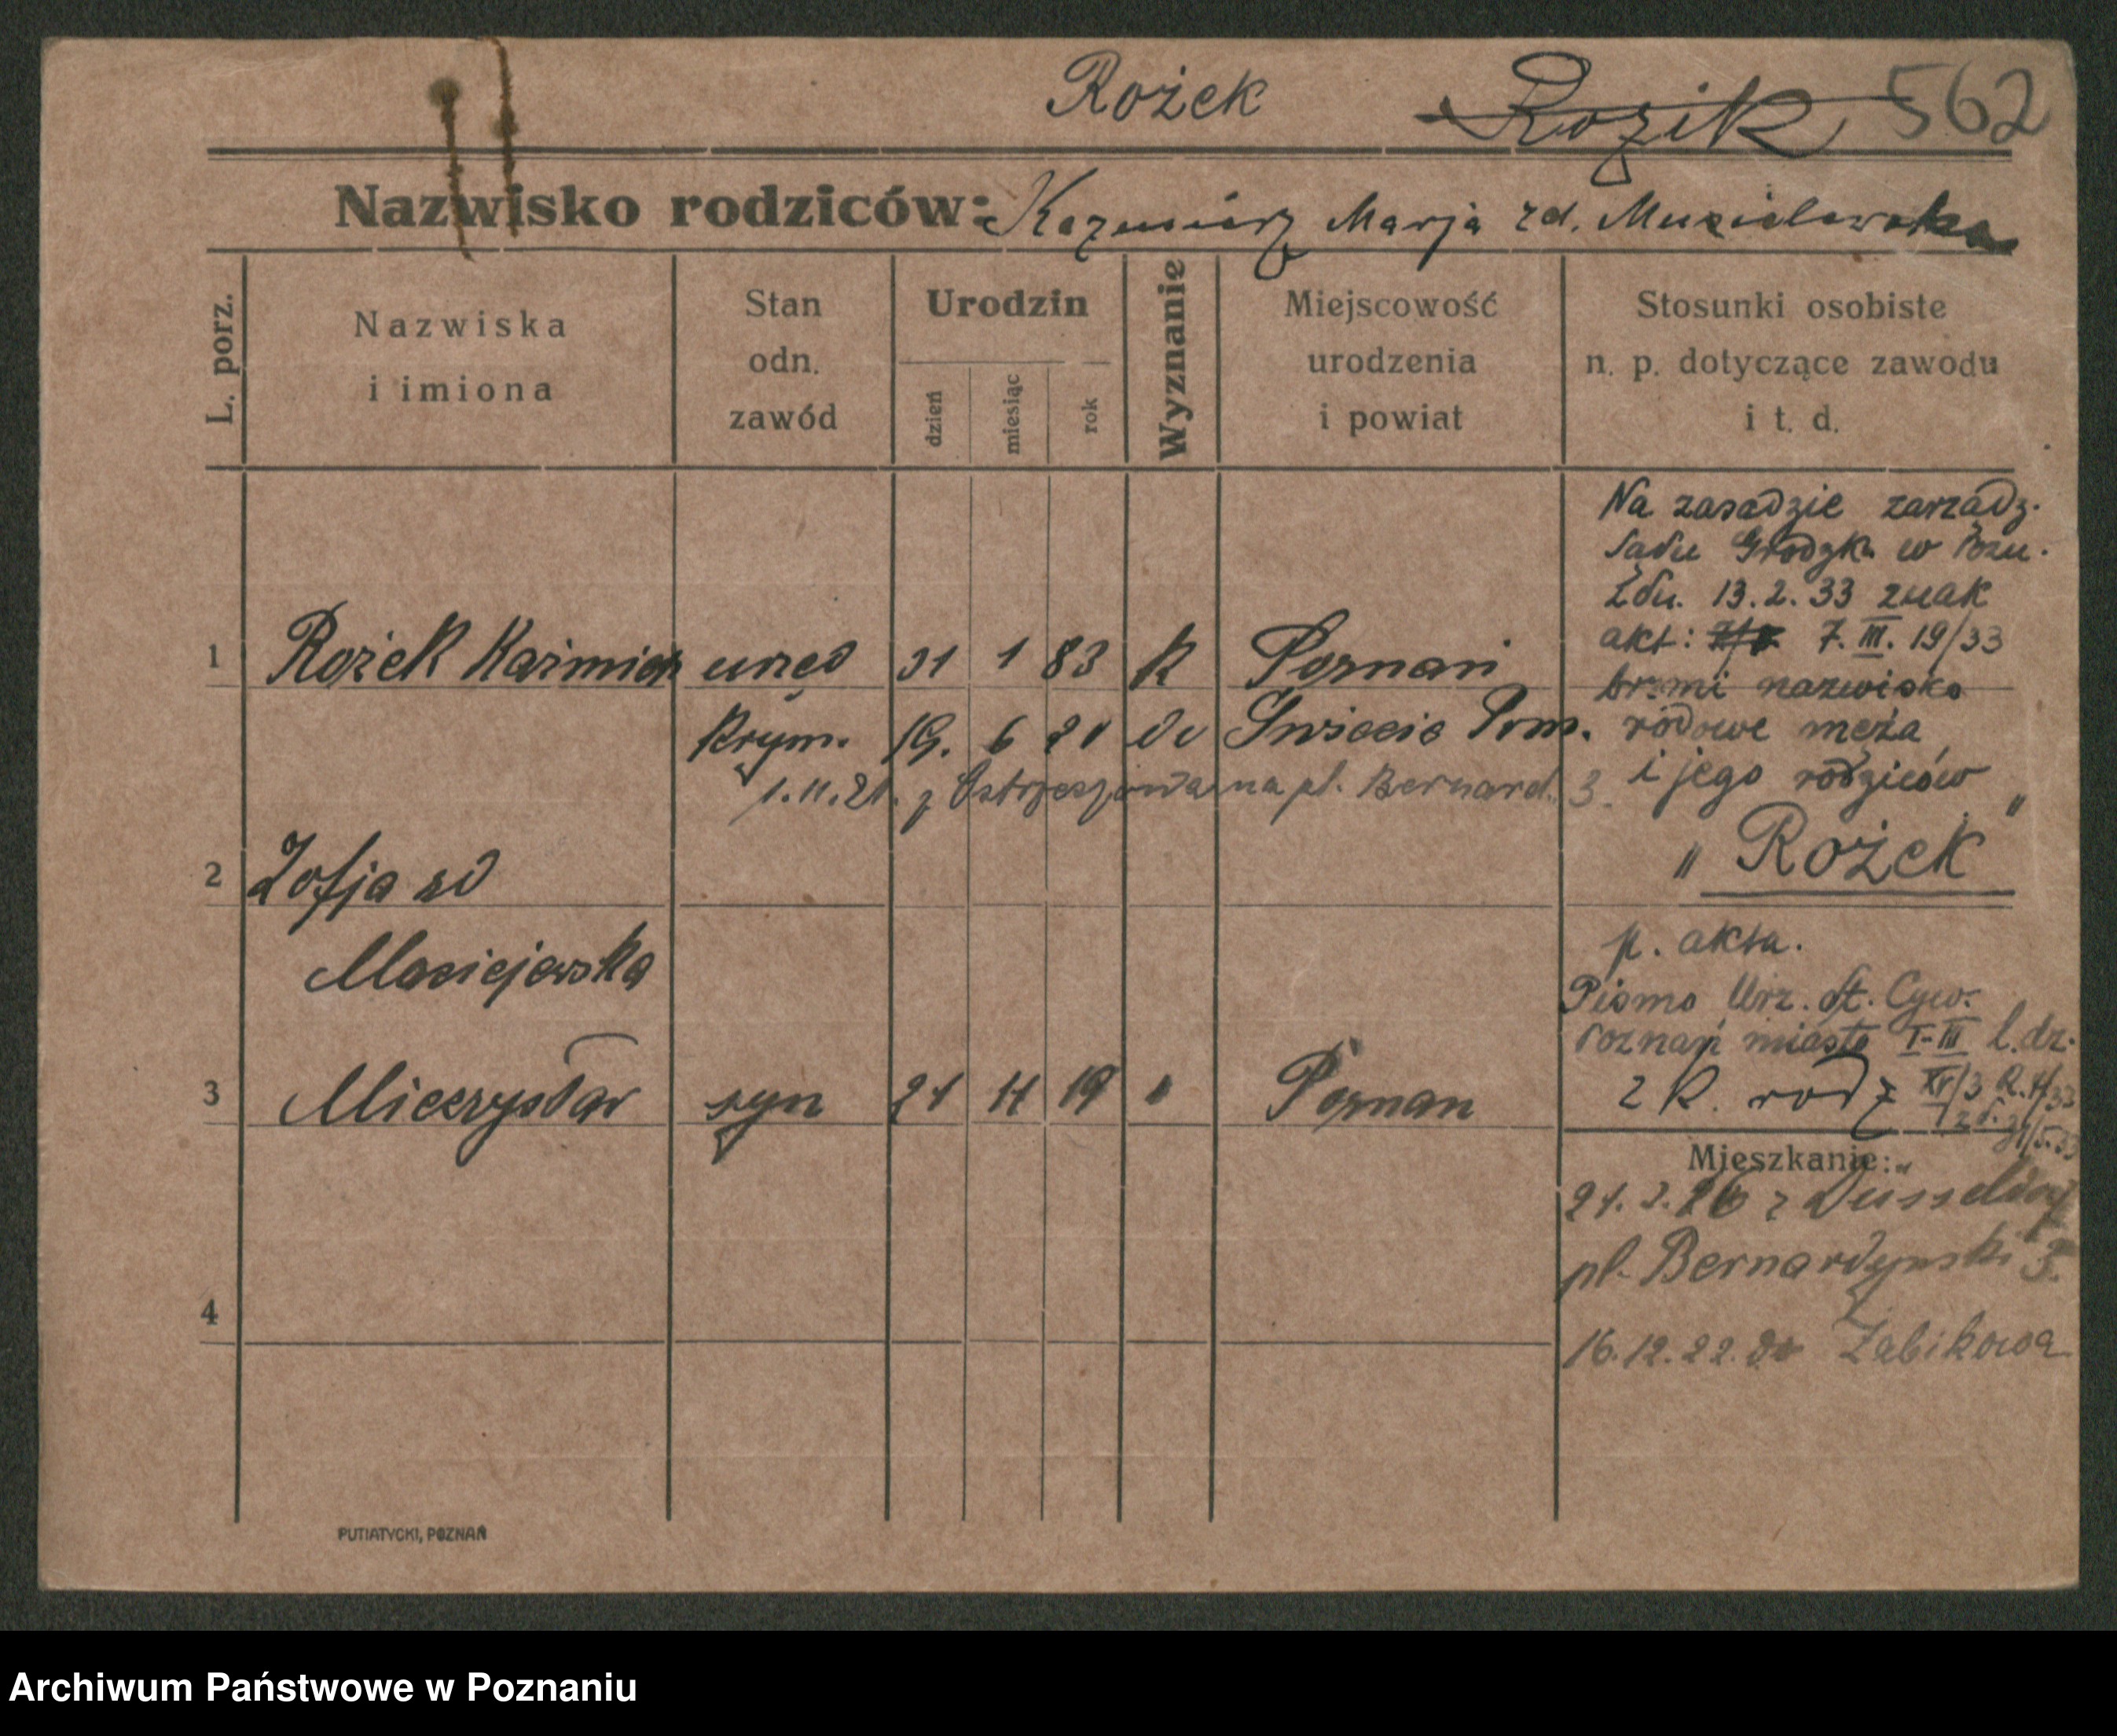 Rożek Rozik 562
Nazwisko rodziców: Kazimierz Marja zd. Musielewska
L. porz.
Nazwiska
i imiona
Stan
odn.
zawód
Urodzin
dzień
miesiąc
rok
Wyznanie
Miejscowość
urodzenia
i powiat
Stosunki osobiste
n. p. dotyczące zawodu
i t. d.
1 Rożek Kazimierz urzęd 31 1 83 k Poznań
Krym. 19. 6 20 do Świecie Pom.
1.11.21. z Ostrzeszowa na pl. Bernard. 3.
2 Zofja zd
Maciejewska
3 Mieczysław syn 21 11 19 " Poznan
4
Na zasadzie zarządz.
Sądu Grodzk. w Pozn.
Zdn. 13.2.33 znak
akt: 7. III. 19/33
brzmi nazwisko
rodowe męża
i jego rodziców
" Rożek "
p. akta.
Pismo Urz. St. Cyw.
Poznań miasto I-III l.dz.
2 R. rodz XV/3 R.4/33
z d. 31/5.33
Mieszkanie:
21.2.26 z Dusseldorf
pl. Bernardynski 3.
16.12.22. do Żabikowa
PUTIATYCKI, POZNAŃ
Archiwum Państwowe w Poznaniu